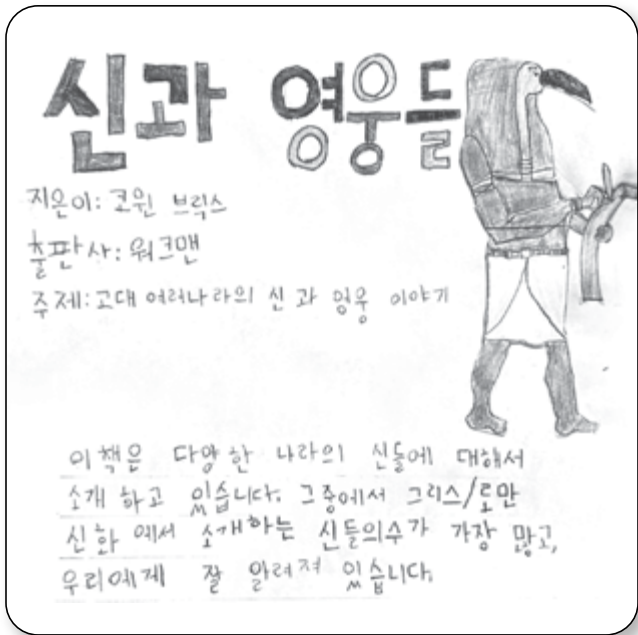 신과 영웅들
지은이: 코윈 브릭스
출판사: 워크맨
주제: 고대 여러나라의 신 과 영웅 이야기
이 책은 다양한 나라의 신들에 대해서
소개 하고 있습니다. 그중에서 그리스/로만
신화 에서 소개하는 신들의수가 가장 많고,
우리에게 잘 알려져 있습니다.